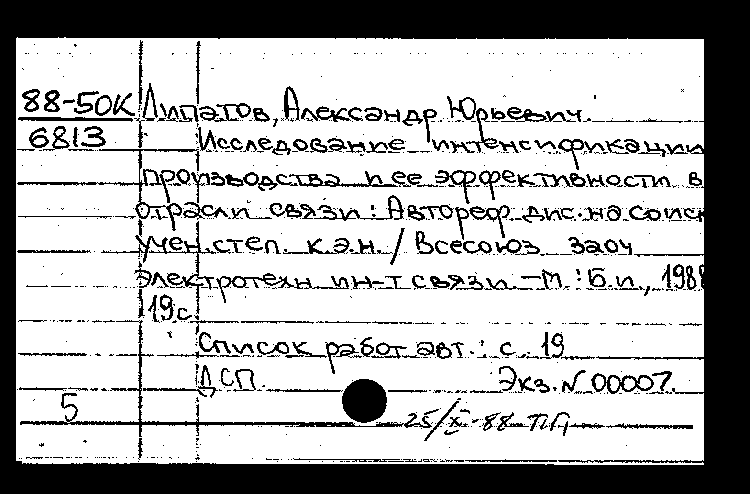 88-50К Липатов, Александр Юрьевич.
6813 Исследование интенсификации
производства и ее эффективности в
отрасли связи : Автореф. дис. на соиск
учен. степ. к.э.н. / Всесоюз заоч
электротехн ин-т связи. - М. : Б.и., 1988
19 с.
Список работ авт. : с. 19
ДСП. Экз. № 00007.
5
25/XI-88 ПД